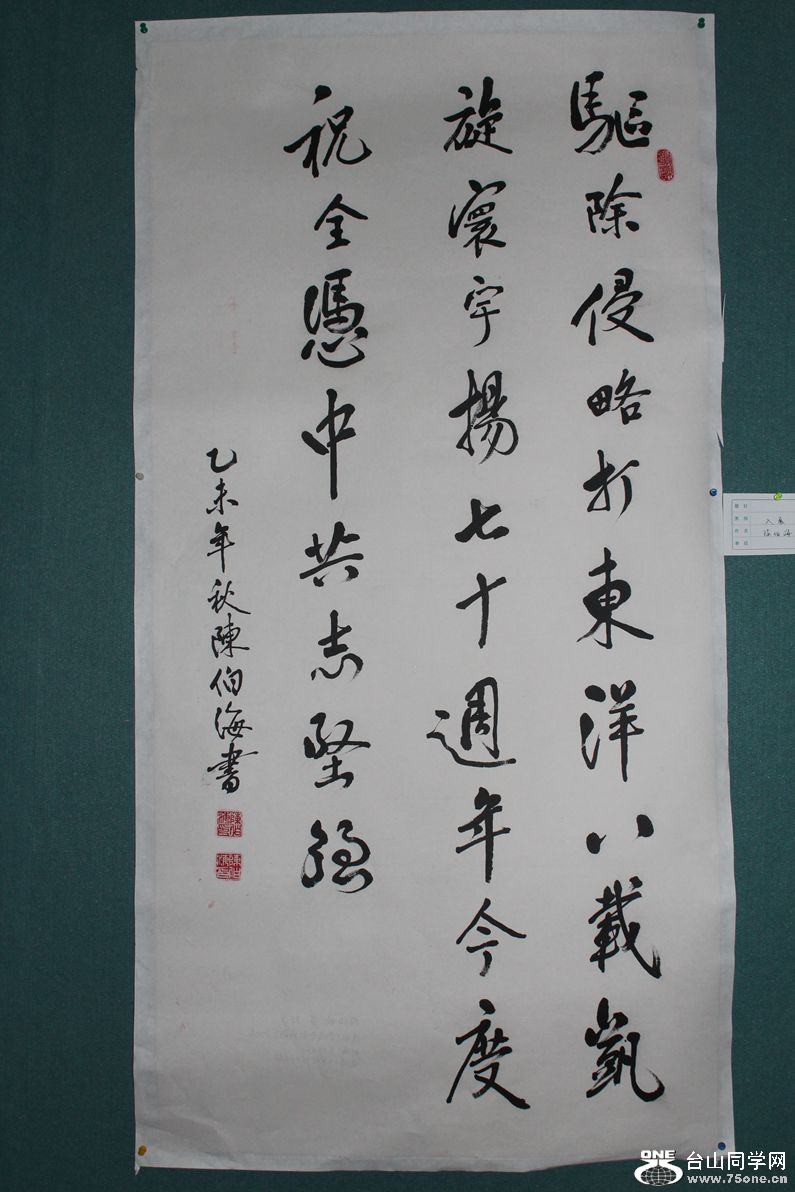 驅除侵略打東洋八載凱
旋寰宇揚七十週年今度
祝全憑中共志堅強
乙未年秋陳伯海書
入展
陈伯海
ONE
台山同学网
www.75one.cn